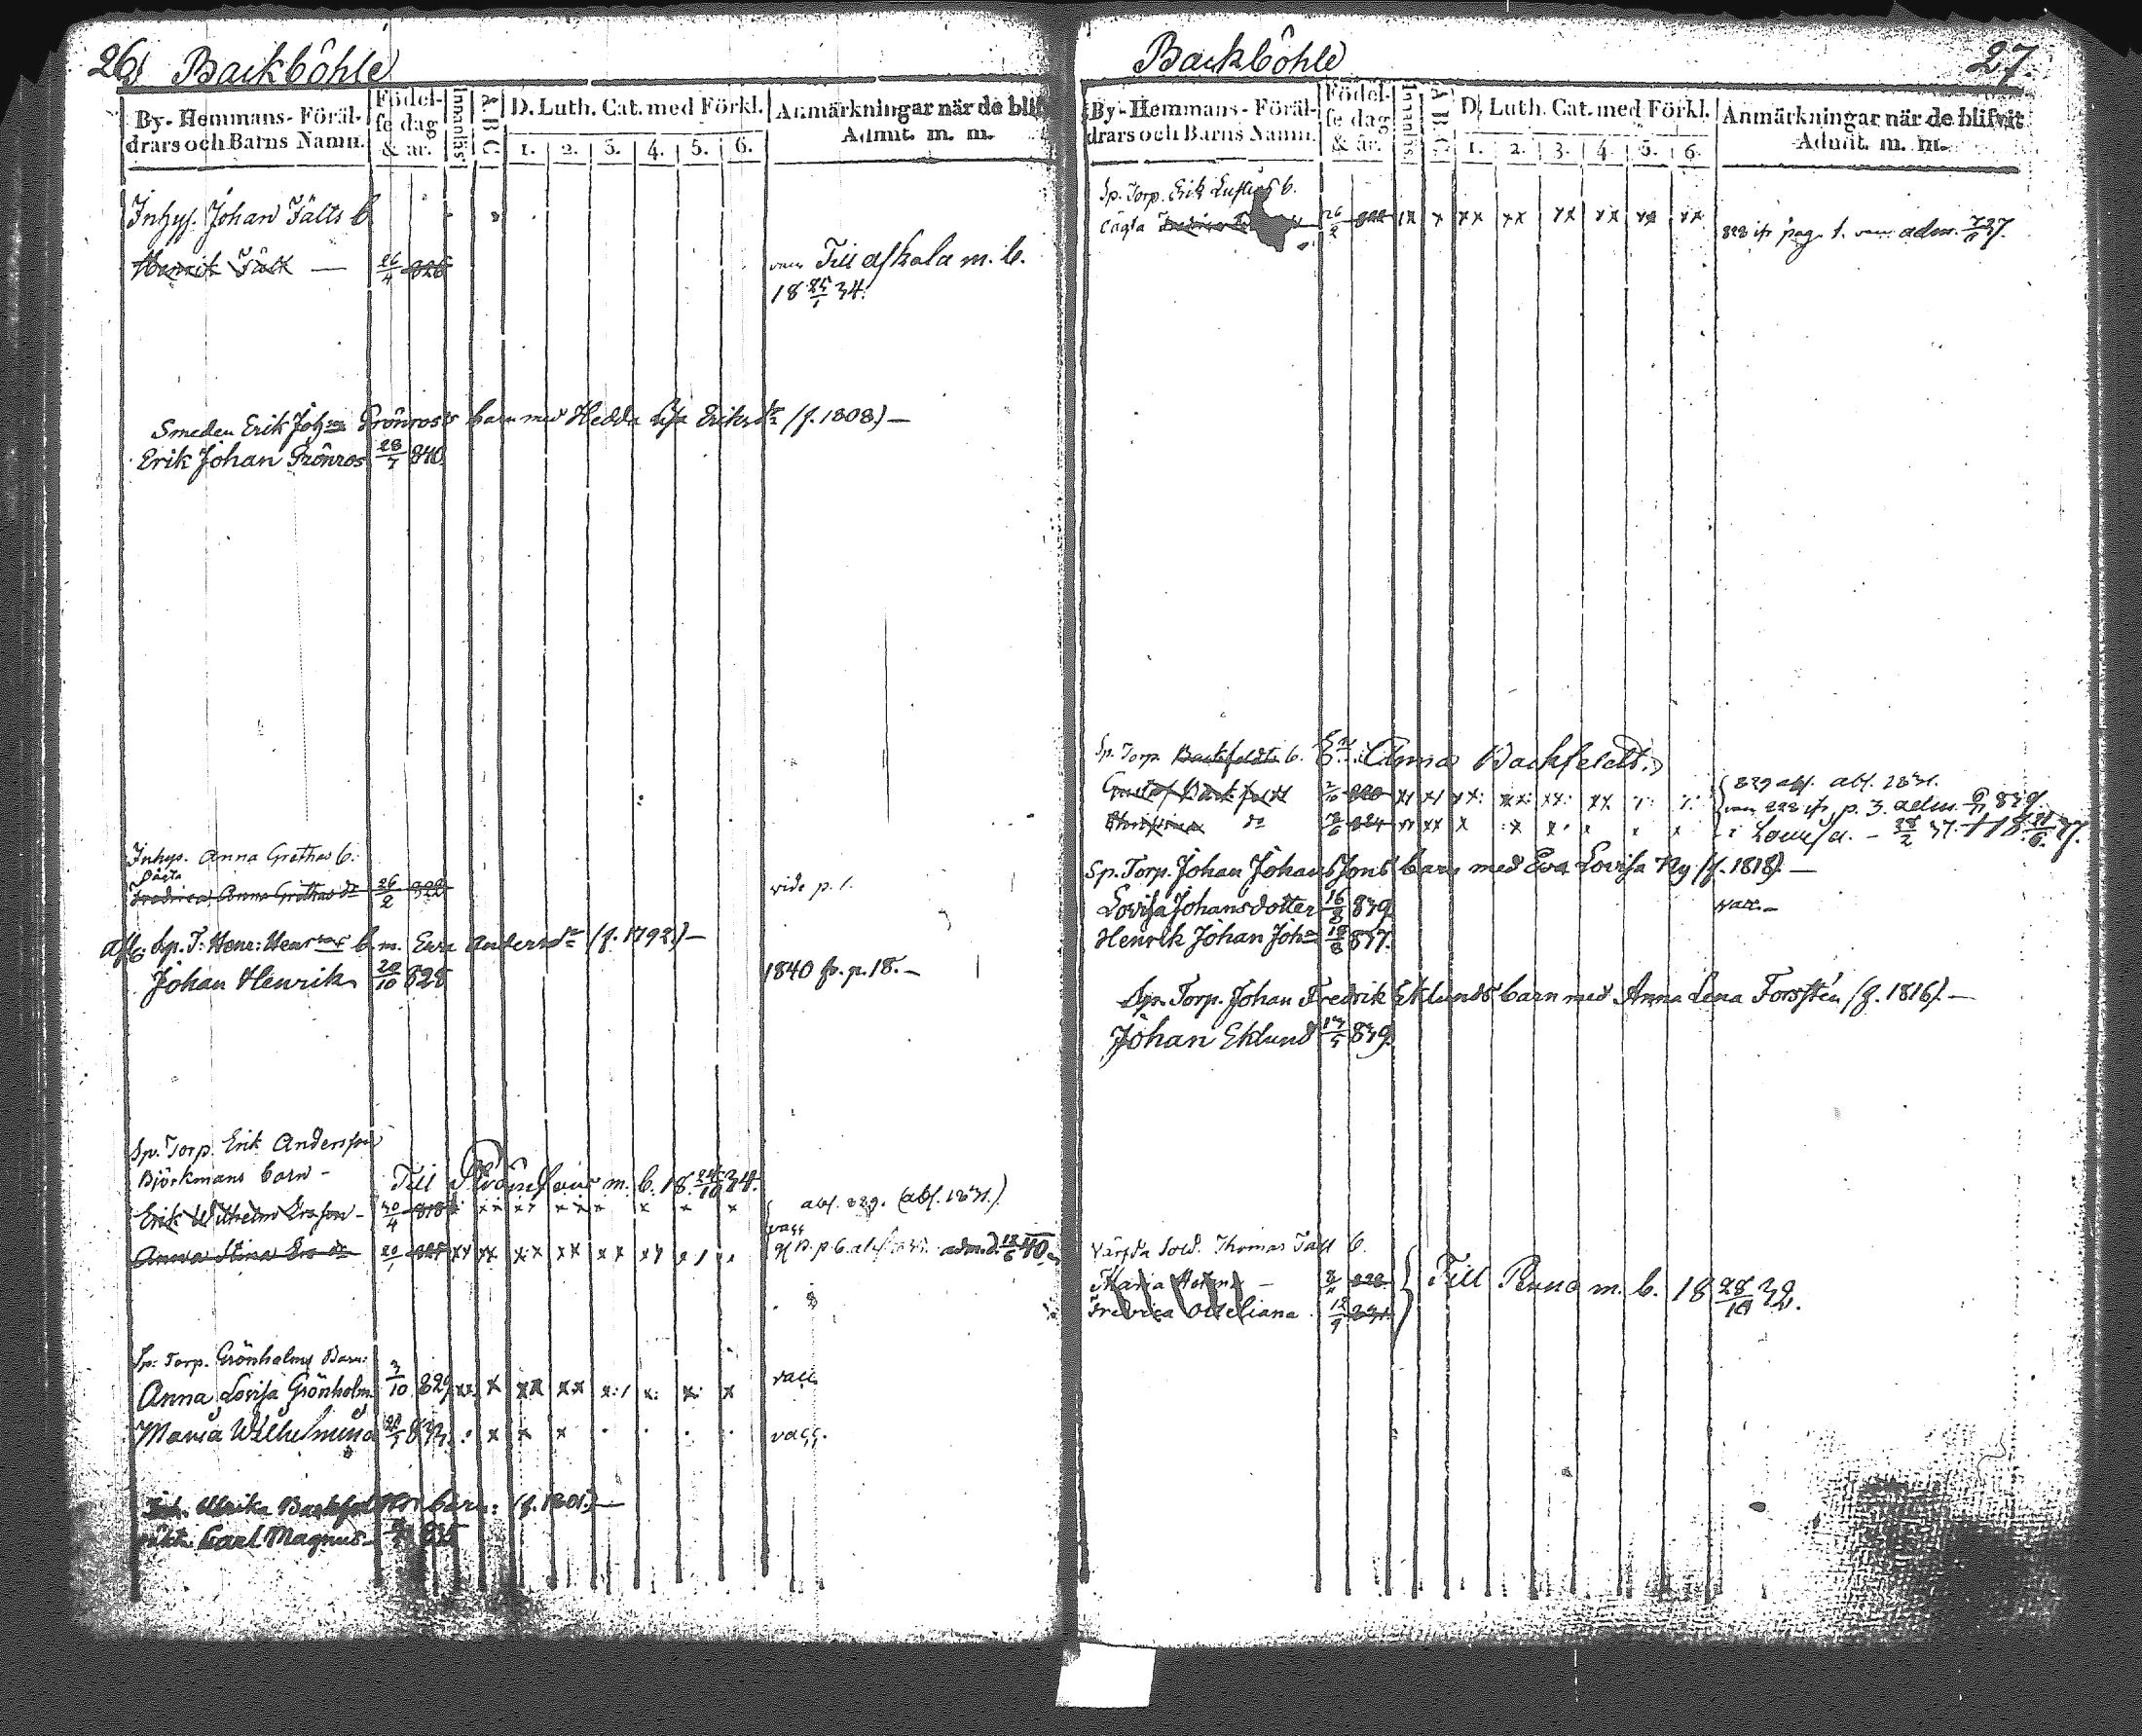 26 Backböhle
By- Hemmans- Föräl-
drars och Barns Namn.
Födel-
se dag
& år.
Innanläs.
A B C.
D. Luth. Cat. med Förkl.
1. 2. 3. 4. 5. 6.
Anmärkningar när de blif
Admit. m. m.
Inhys. Johan Fälts b.
Henrik Fält — 26/4 826
vacc Till Askola m. b.
18 25/1 34.
Smeden Erik Johsson Grönroos barn med Hedda Lisa Eriksdr (f. 1808) —
Erik Johan Grönroos 28/7 840.
Inhys. Anna Grethas b.
Oäcta
Fredrica Anna Grethas dr 26/2 822
vide p. 1.
Afl. Sp. T. Henr: Henrssons b. m. Eva Andersdr (f. 1792) —
Johan Henrik 20/10 828
1840 fr. p. 18. —
Sp. Torp. Erik Andersson
Björkmans barn -
Till m. b. 18 24/10 34.
Erik Wilhelm Ersson - 30/4 818 x xx xx xx x x x x
abs. 829. (abs. 1831.)
Anna Stina Ers dr 20/1 825 xx xx xx xx xx xx
vacc
adm. d. 18/6 40.
Sp. Torp. Grönholms Barn:
Anna Lovisa Grönholm 3/10 829 xx x xx xx x x x x
vacc
Maria Wilhelmina 832. x x x
vacc.
Ulrika barn: (f. 1801) —
oäkta Carl Magnus - 835
Backböhle 27.
By- Hemmans- Föräl-
drars och Barns Namn.
Födel-
se dag
& år.
Innanläs.
A B C.
D. Luth. Cat. med Förkl.
1. 2. 3. 4. 5. 6.
Anmärkningar när de blifvit
Admit. m. m.
Sp. Torp. Erik b.
oägta 26/2 822 xx x xx xx xx xx xx xx
pag. 1. vacc adm. 37.
Sp. Torp. Backfeldts b. Anna Backfeldt.
Gustaf Backfeldt 820 xx xx xx: xx: xx: xx
829 abs. abs. 1831.
p. 3. adm. 839.
dr 824 xx xx x x x x x x
i Lovisa. - 28/2 37.
Sp. Torp. Johan Johanssons barn med Eva Lovisa Ny (f. 1818) —
Lovisa Johansdotter 16/8 839.
vacc. —
Henrik Johan Johsson 18/8 837.
Sp. Torp. Johan Fredrik Eklunds barn med Anna Lena Forstén (f. 1816). —
Johan Eklund 839.
Värfda Sold. Thomas Fält b.
Maria Helena — 828
Fredrica Otteliana 12/9 831
Till m. b. 18 28/10 32.